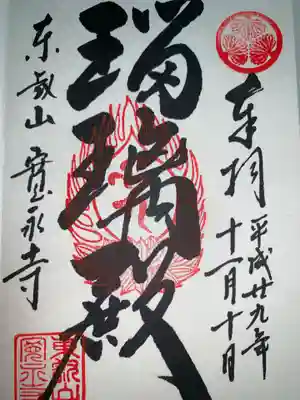 奉拝 平成廿九年
十一月十日
瑠璃殿
東叡山 寛永寺